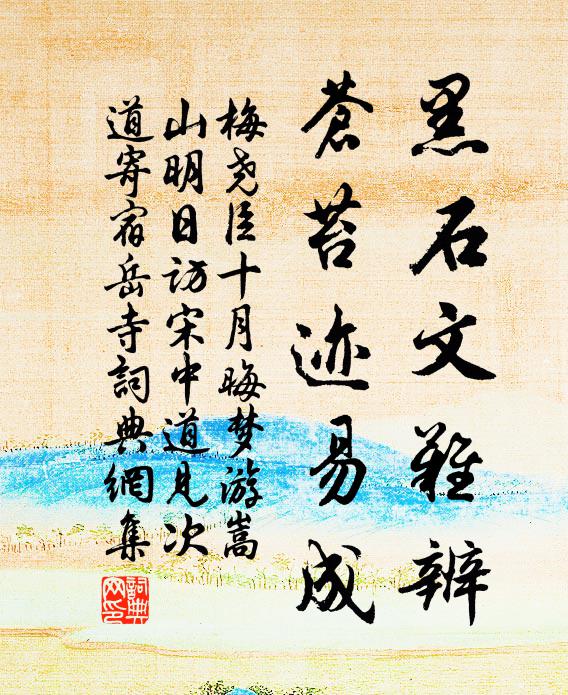 黑石文難辨
蒼苔迹易成
梅堯臣十月晦梦游嵩
山明日访宋中道見次
道寄宿岳寺詞典網集
詞典
网印